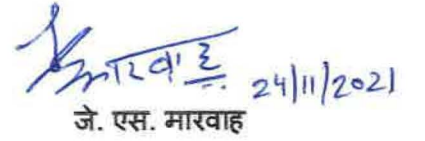 मारवाह 24/11/2021
जे. एस. मारवाह